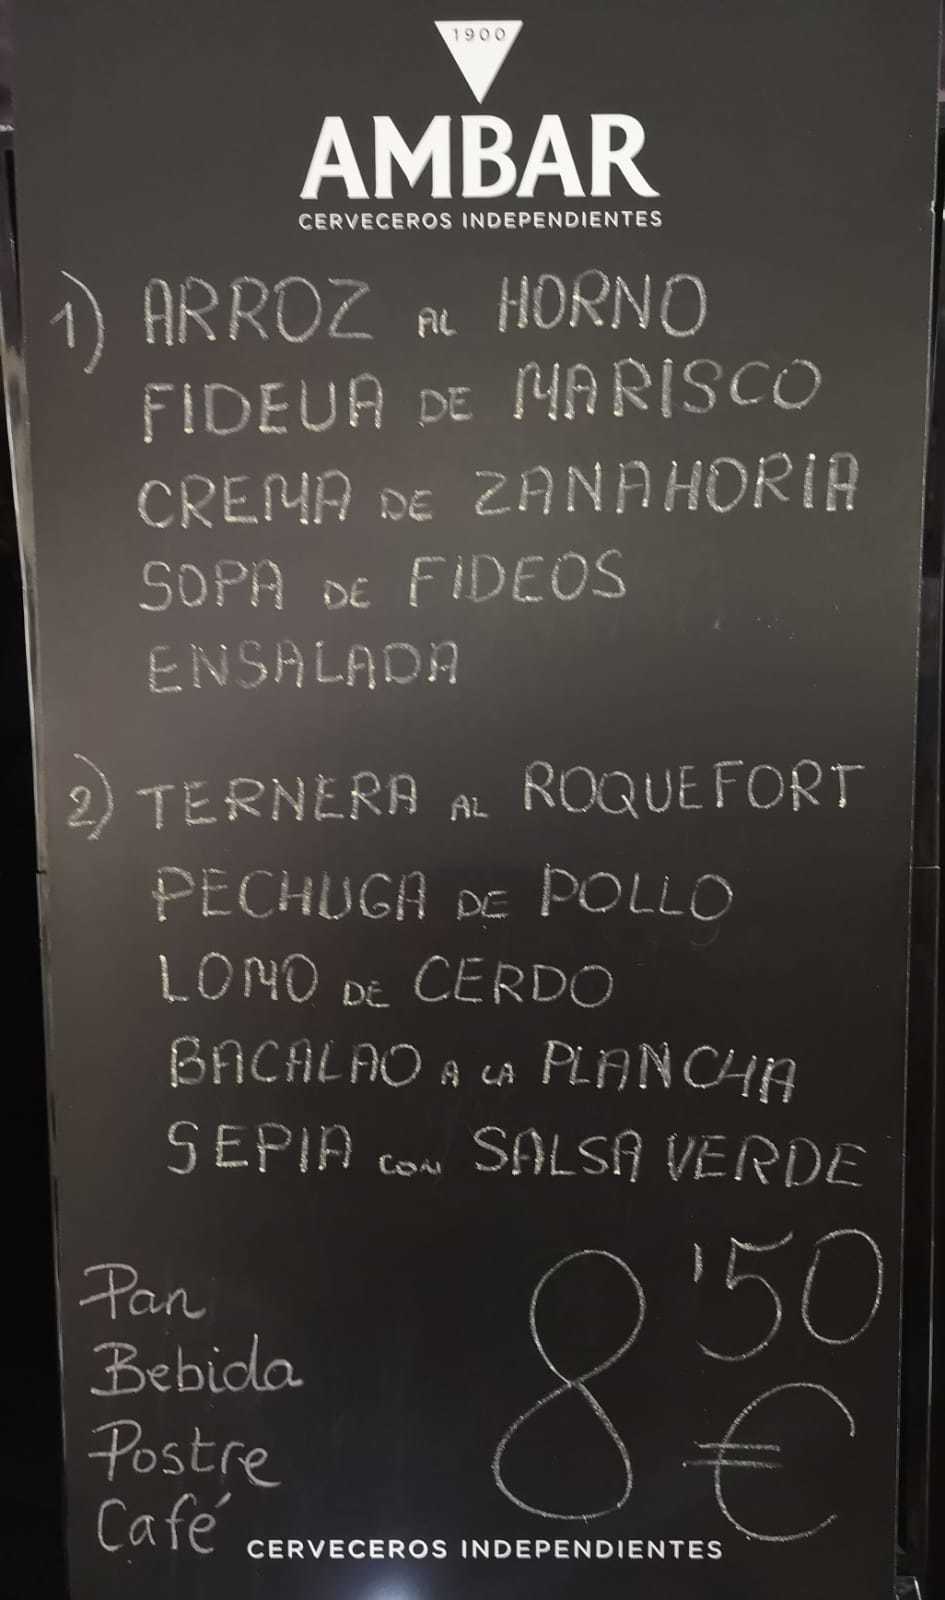 1900
AMBAR
CERVECEROS INDEPENDIENTES
1) ARROZ AL HORNO
FIDEUA DE MARISCO
CREMA DE ZANAHORIA
SOPA DE FIDEOS
ENSALADA
2) TERNERA AL ROQUEFORT
PECHUGA DE POLLO
LOMO DE CERDO
BACALAO A LA PLANCHA
SEPIA CON SALSA VERDE
Pan
Bebida
Postre
Café
8'50
€
CERVECEROS INDEPENDIENTES